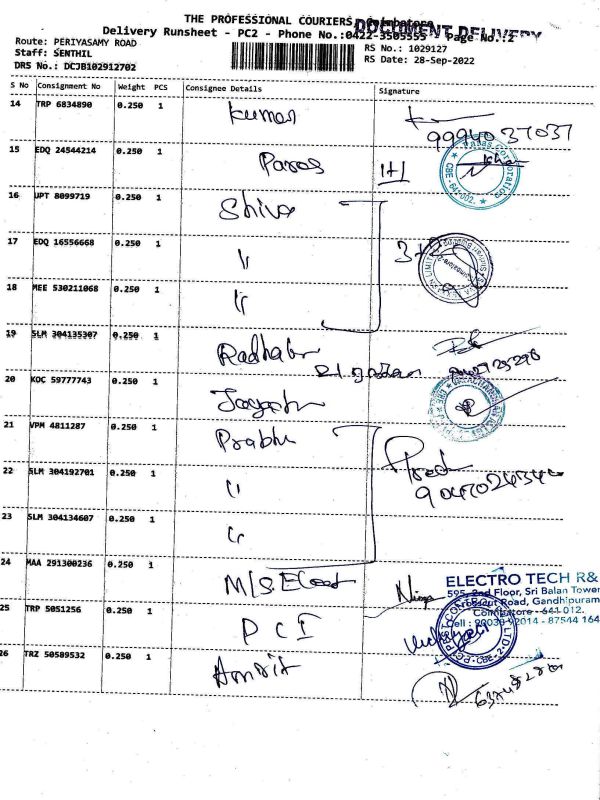 THE PROFESSIONAL COURIERS, Coimbatore
DOCUMENT DELIVERY
Delivery Runsheet - PC2 - Phone No.:0422-3505555 Page No.:2
Route: PERIYASAMY ROAD
RS No.: 1029127
Staff: SENTHIL
RS Date: 28-Sep-2022
DRS No.: DCJB102912702
S No Consignment No Weight PCS Consignee Details Signature
14 TRP 6834890 0.250 1 Kumar
9994037037
15 EDQ 24544214 0.250 1 Paras 1+1
CBE-64-002.
16 UPT 8099719 0.250 1 Shiva
17 EDQ 16556668 0.250 1 "
18 MEE 530211068 0.250 1 "
19 SLM 304135307 0.250 1
20 KOC 59777743 0.250 1
21 VPM 4811287 0.250 1 Prabhu
22 SLM 304192701 0.250 1 "
23 SLM 304134607 0.250 1 "
24 MAA 291300236 0.250 1
ELECTRO TECH R&
595, 2nd Floor, Sri Balan Tower
Crosscut Road, Gandhipuram
Coimbatore - 641 012.
25 TRP 5051256 0.250 1 P C I
26 TRZ 50589532 0.250 1 Amrit